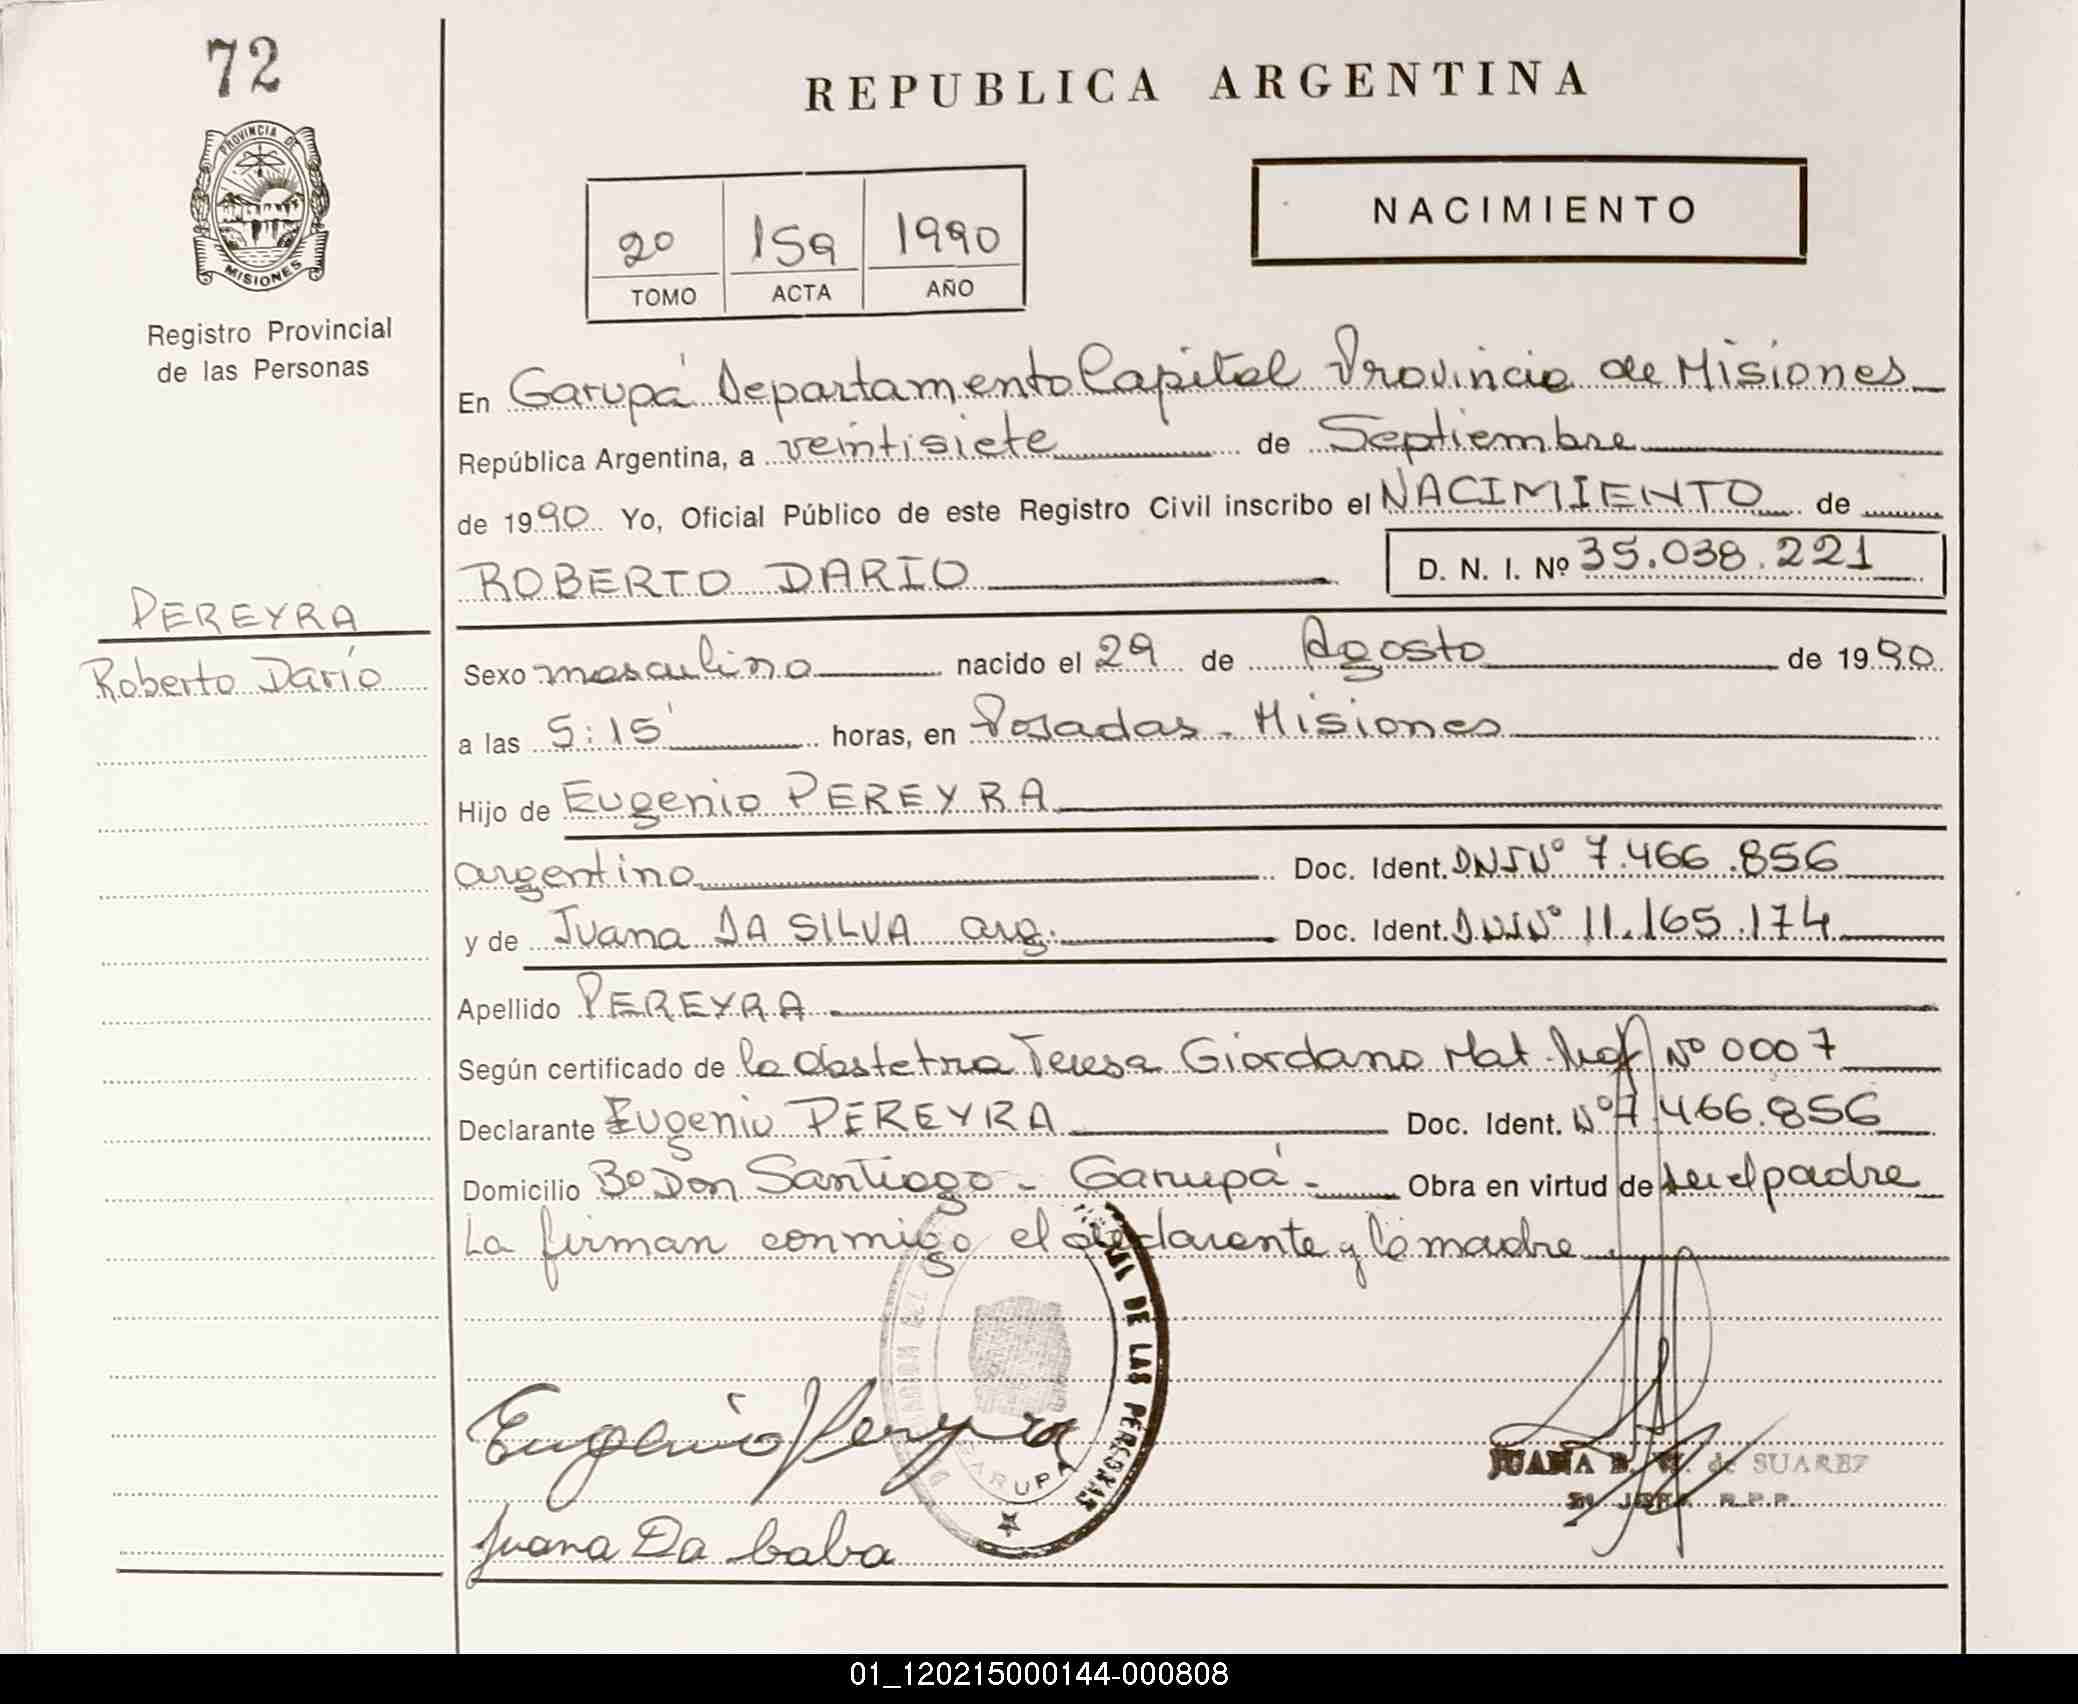 72
REPUBLICA ARGENTINA
PROVINCIA DE
MISIONES
Registro Provincial
de las Personas
NACIMIENTO
2º 159 1990
TOMO ACTA AÑO
En Garupá Departamento Capital Provincia de Misiones
República Argentina, a veintisiete de Septiembre
de 1990 Yo, Oficial Público de este Registro Civil inscribo el NACIMIENTO de
ROBERTO DARIO D. N. I. Nº 35.038.221
PEREYRA
Roberto Darío
Sexo masculino nacido el 29 de Agosto de 1990
a las 5:15' horas, en Posadas - Misiones
Hijo de Eugenio PEREYRA
argentino Doc. Ident. DNI Nº 7.466.856
y de Juana DA SILVA arg. Doc. Ident. DNI Nº 11.165.174
Apellido PEREYRA
Según certificado de la Obstetra Teresa Giordano Mat. Prof Nº 0007
Declarante Eugenio PEREYRA Doc. Ident. Nº 7.466.856
Domicilio Bº Don Santiago - Garupá - Obra en virtud de ser el padre
La firman conmigo el declarante y la madre
DE LAS PERSONAS
GARUPA
Eugenio Pereyra
JUANA B. de SUAREZ
JEFA R.P.P.
Juana Da
01_120215000144-000808